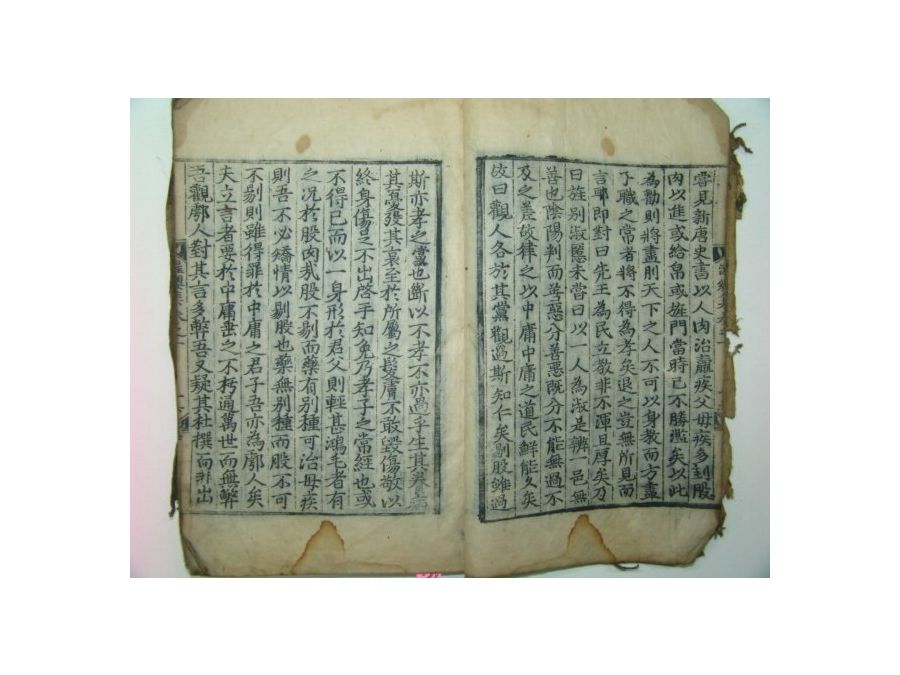 嘗見新唐史書以人肉治羸疾父母疾多刲股
肉以進或給帛或旌門當時已不勝濫矣以此
為勸則將盡刖天下之人不可以身教而方盡
子職之常者將不得為孝矣退之豈無所見而
言耶即對曰先王為民立教非不渾且厚矣乃
曰旌別淑慝未嘗曰以一人為淑是辨一邑無
善也陰陽判而善惡分善惡既分不能無過不
及之差故律之以中庸中庸之道民鮮能久矣
故曰觀人各於其黨觀過斯知仁矣剔股雖過
斯亦孝之黨也斷以不孝不亦過乎生其
其憂發其哀至於所屬之髮膚不敢毀傷敬以
終身傷足不出啓手知免乃孝子之常經也或
不得已而以一身形於君父則輕甚鴻毛者有
之况於股肉哉股不剔而藥有別種可治母疾
則吾不必矯情以剔股也藥無別種而股不可
不剔則雖得罪於中庸之君子吾亦為鄠人矣
夫立言者要於中庸垂之不朽通萬世而無弊
吾觀鄠人對其言多弊吾又疑其杜撰而非出